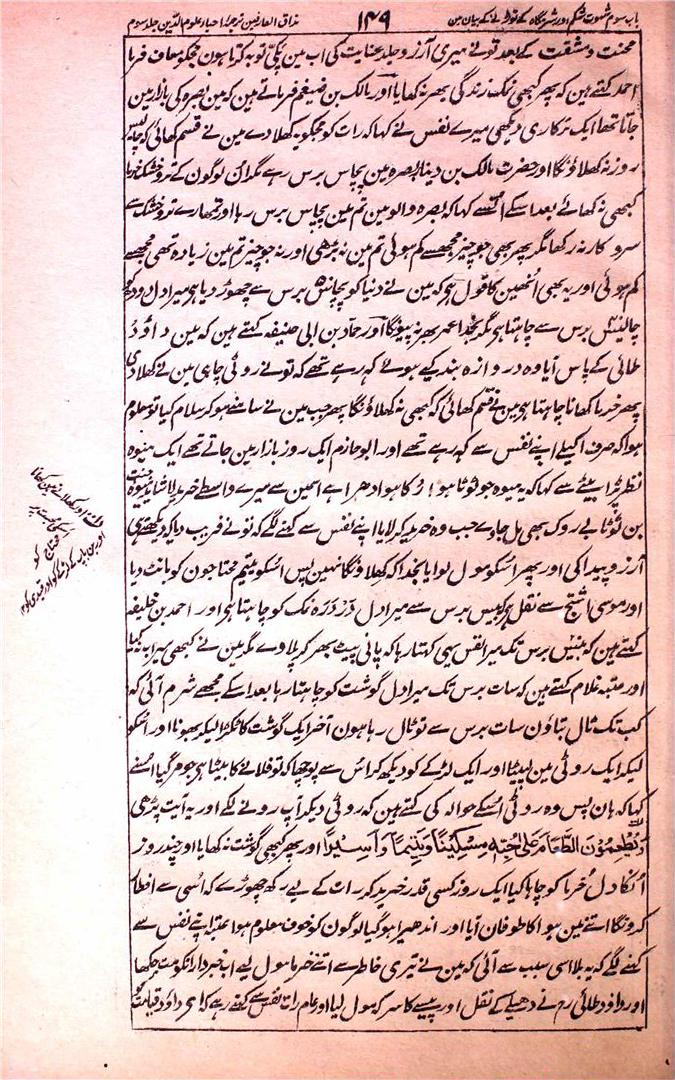 باب سوم شہوت شکم اور شرمگاہ کے توڑنے کے بیان مین
۱۴۹
مذاق العارفین ترجمہ احیار علوم الدین جلد سوم
محنت و مشقت کے بعد تو نے میری آرزو جلد عنایت کی اب مین پکی توبہ کرتا ہون مجکو معاف فرما
احمد کہتے ہین کہ پھر کبھی نمک زندگی بھر نہ کھایا اور مالک بن ضیغم فرماتے ہین کہ مین بصرہ کی بازار مین
جاتا تھا ایک ترکاری دیکھی میرے نفس نے کہا کہ رات کو مجکو یہ کھلا دے مین نے قسم کھائی کہ چالیس
روز نہ کھلاؤنگا اور حضرت مالک بن دینار بصرہ مین پچاس برس رہے مگر اُن لوگون کے تر و خشک خرما
کبھی نہ کھائے بعد اسکے اُنسے کہا کہ بصرہ والو مین تم مین پچاس برس رہا اور تمھارے تر و خشک سے
سروکار نہ رکھا مگر پھر بھی جو چیز مجھسے کم ہوئی تم مین نہ بڑھی اور نہ جو چیز تم مین زیادہ تھی مجھسے
کم ہوئی اور یہ بھی اُنھین کا قول ہے کہ مین نے دنیا کو پچاس برس سے چھوڑ دیا ہی میرا دل دودھ کو
چالیس برس سے چاہتا ہی مگر بخدا عمر بھر نہ پیونگا اور حماد بن ابی حنیفہ کہتے ہین کہ مین داؤد
طائی کے پاس آیا وہ دروازہ بند کیے ہوئے کہہ رہے تھے کہ تو نے روٹی چاہی مین نے کھلا دی
پھر خرما کھانا چاہتا ہی مین نے قسم کھائی کہ کبھی نہ کھلاؤنگا پھر جب مین نے سامنے ہو کر سلام کیا تو معلوم
ہوا کہ صرف اکیلے اپنے نفس سے کہہ رہے تھے اور ابو حازم ایک روز بازار مین جاتے تھے ایک میوہ
نظر پڑا بیٹے سے کہا کہ یہ میوہ جو ٹوٹا ہوا رکا ہوا دھرا ہے اسمین سے میرے واسطے خرید لا شاید میوہ جنت
بن ٹوٹا بے روک بھی مل جاوے جب وہ خرید کر لایا اپنے نفس سے کہنے لگے کہ تو نے فریب دیا کہ دیکھتے ہی
آرزو پیدا کی اور پھر اسکو مول لوایا بخدا کہ کھلاؤنگا نہین پس اُسکو یتیم محتاجون کو بانٹ دیا
اور موسی اشج سے نقل ہی کہ بیس برس سے میرا دل دَردَرہ نمک کو چاہتا ہی اور احمد بن خلیفہ
کہتے ہین کہ بیس برس تک میرا نفس یہی کہتا رہا کہ پانی پیٹ بھر کر پلا دے مگر مین نے کبھی سیراب نہ کیا
اور عتبہ غلام کہتے ہین کہ سات برس تک میرا دل گوشت کو چاہتا رہا بعد اسکے مجھے شرم آئی کہ
کب تک ٹال بتاؤن سات برس سے تو ٹال رہا ہون آخر ایک گوشت کا ٹکڑا لیکر بھونا اور اُسکو
لیکر ایک روٹی مین لپیٹا اور ایک لڑکے کو دیکھ کر اُس سے پوچھا کہ تو فلانے کا بیٹا ہی جو مر گیا اُسنے
کہا کہ ہان پس وہ روٹی اُسکے حوالہ کی کہتے ہین کہ روٹی دیکر آپ رونے لگے اور یہ آیت پڑھی
وَیُطْعِمُوْنَ الطَّعَامَ عَلیٰ حُبِّہٖ مِسْکِیْنًا وَّیَتِیْمًا وَّاَسِیْرًا اور پھر کبھی گوشت نہ کھایا اور چند روز
اُنکا دل خرما کو چاہا کیا ایک روز کسی قدر خرید کر رات کے لیے رکھ چھوڑے کہ اُسی سے افطار
کرونگا اتنے مین ہوا کا طوفان آیا اور اندھیرا ہو گیا لوگون کو خوف معلوم ہوا عتبہ اپنے نفس سے
کہنے لگے کہ یہ بلا اسی سبب سے آئی کہ مین نے تیری خاطر سے اتنے خرما مول لیے اب خبردار انکو مت چکھا
اور داؤد طائی رح نے دھیلے کے نقل اور پیسے کا سرکہ مول لیا اور تمام رات نفس سے کہتے رہے کہ اے داؤد قیامت کو